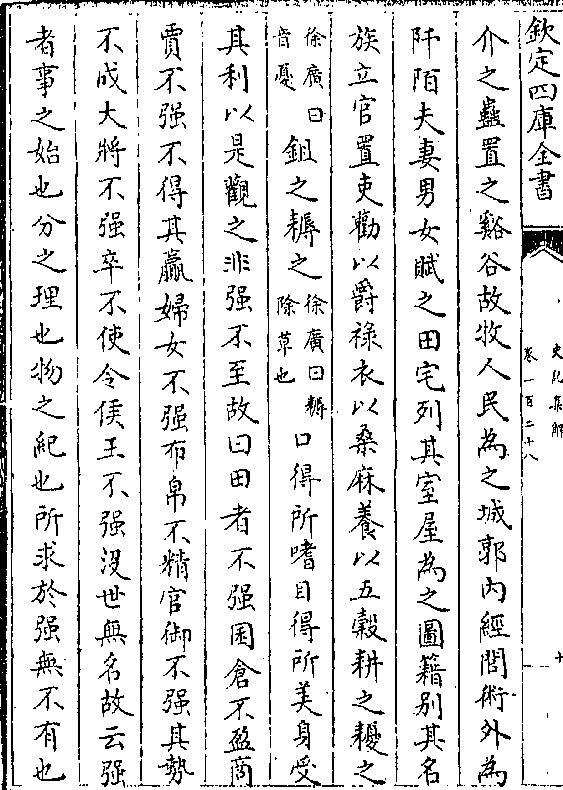 欽定四庫全書
史記集解
卷一百二十八
十
介之蟲置之谿谷故牧人民為之城郭內經閭術外為
阡陌夫妻男女賦之田宅列其室屋為之圖籍别其名
族立官置吏勸以爵祿衣以桑麻養以五穀耕之耰之
徐廣曰音憂
鉏之耨之
徐廣曰耨除草也
口得所嗜目得所美身受
其利以是觀之非强不至故曰田者不强囷倉不盈商
賈不强不得其贏婦女不强布帛不精官御不强其勢
不成大將不强卒不使令侯王不强没世無名故云强
者事之始也分之理也物之紀也所求於强無不有也